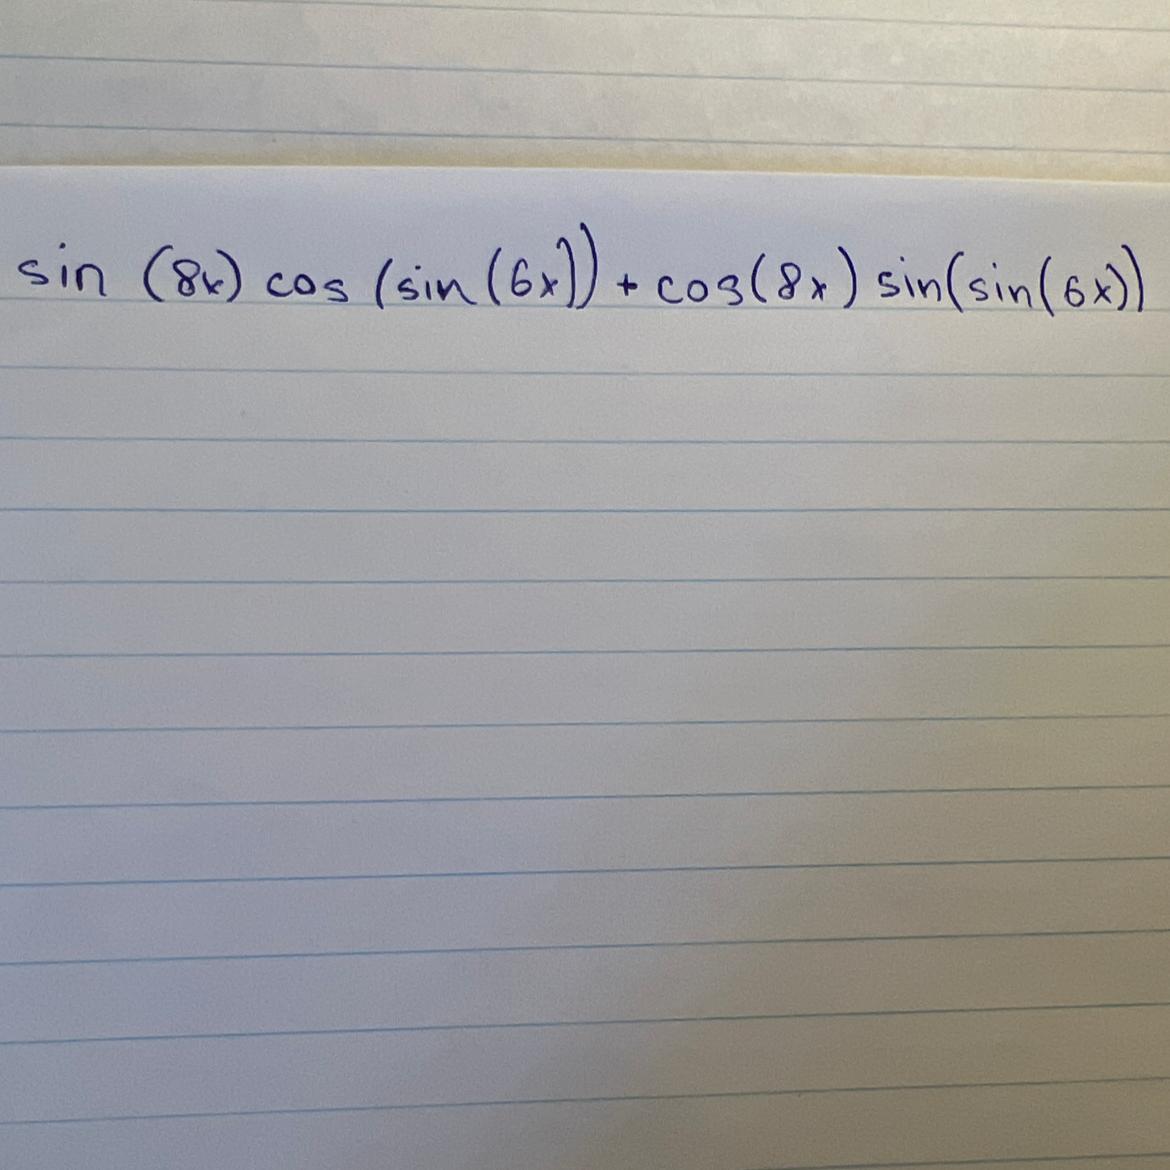 sin (8x) cos (sin (6x)) + cos(8x) sin(sin(6x))